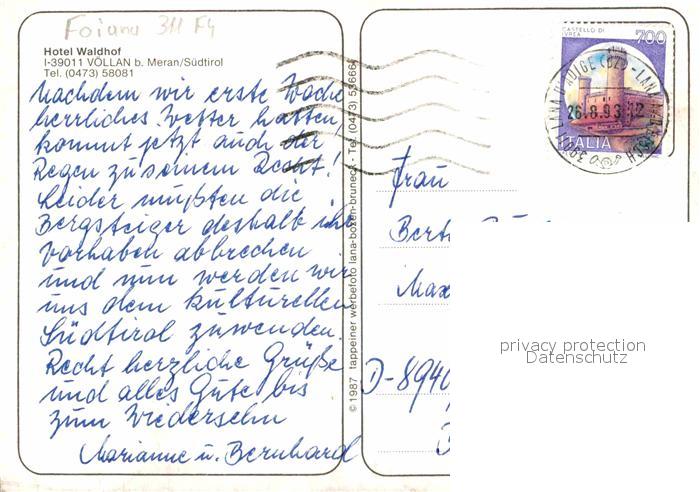 Foiana 311 F4
Hotel Waldhof
I-39011 VÖLLAN b. Meran/Südtirol
Tel. (0473) 58081
Nachdem wir erste Woche
herrliches Wetter hatten,
kommt jetzt auch der
Regen zu seinem Recht!
Leider mußten die
Bergsteiger deshalb ihr
Vorhaben abbrechen
und nun werden wir
uns dem kulturellen
Südtirol zuwenden.
Recht herzliche Grüße
und alles Gute bis
zum Wiedersehn
Marianne u. Bernhard
© 1987 tappeiner werbefoto lana-bozen-bruneck - Tel. (0473) 53666
CASTELLO DI
IVREA
700
ITALIA
26.8.93
Frau
Bert
Max
D-8940
privacy protection
Datenschutz